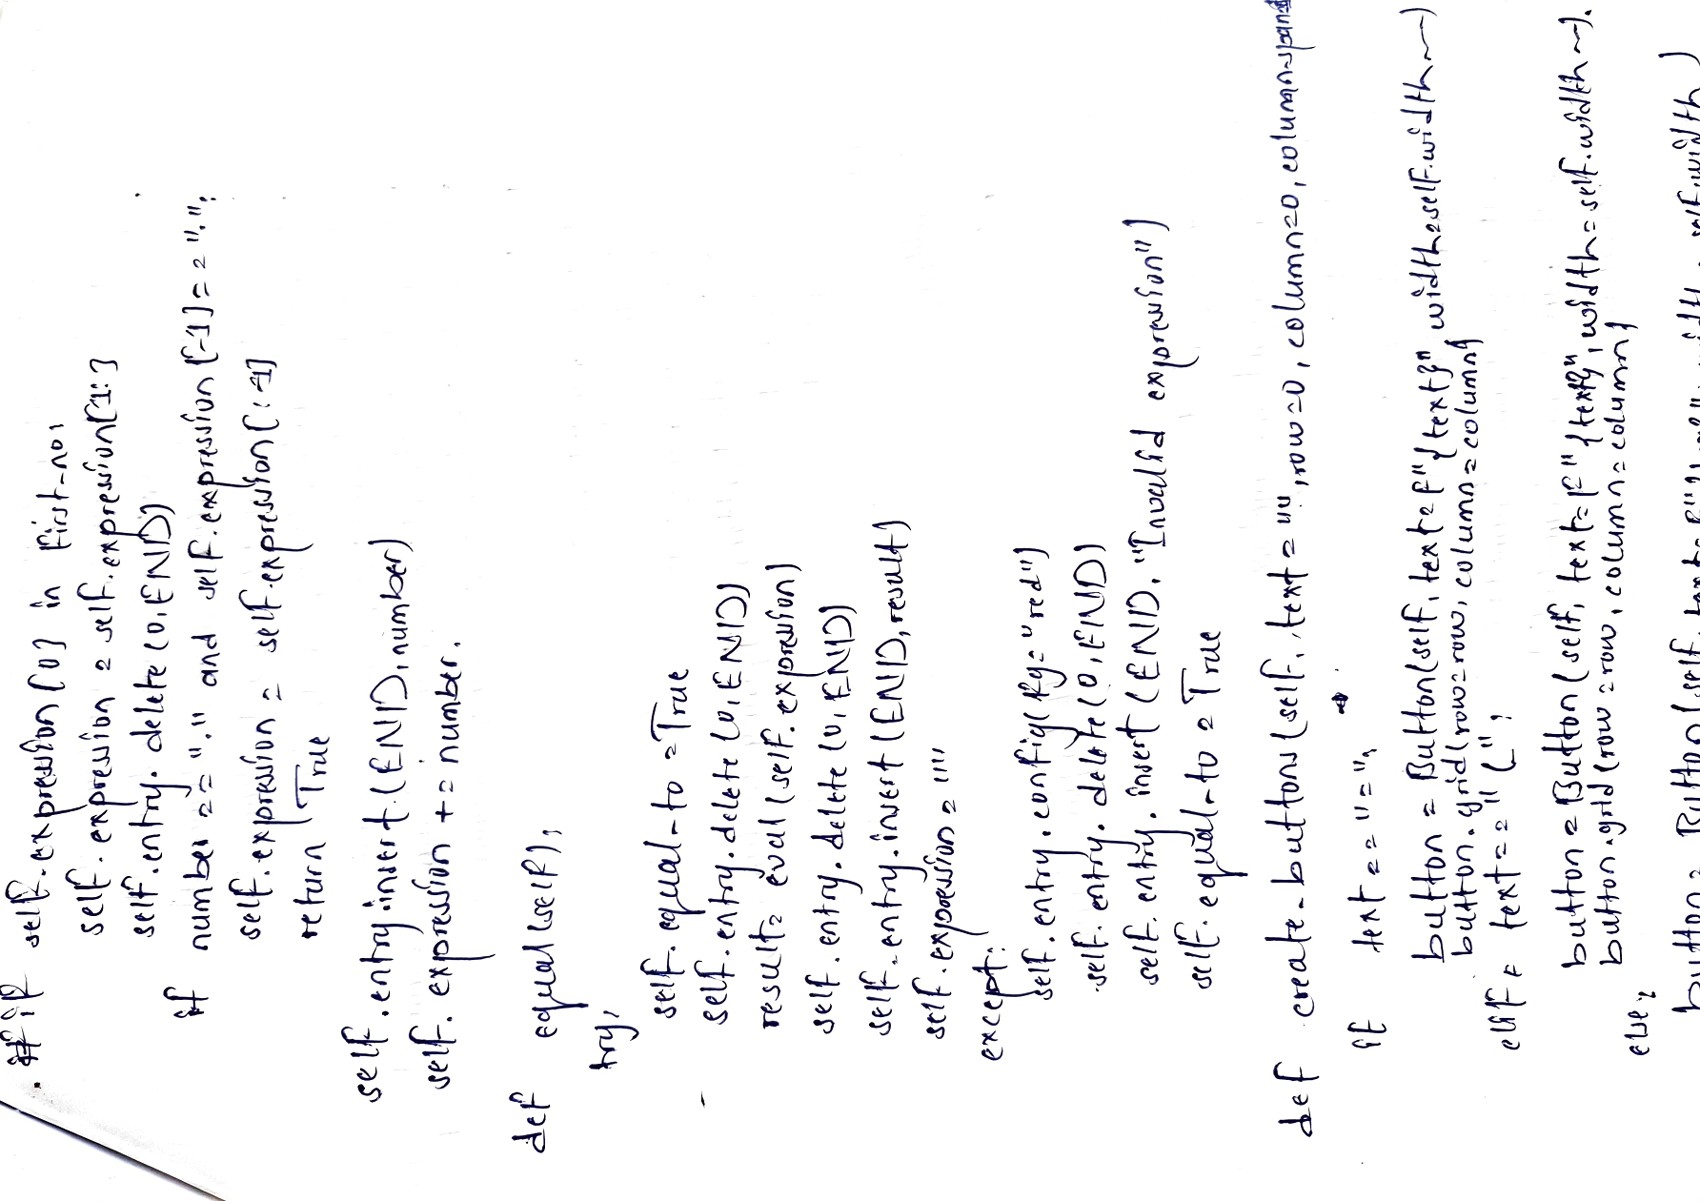 if self.expression[0] in first_no:
self.expression = self.expression[1:]
self.entry.delete(0,END)
if number == "." and self.expression[-1] == ".":
self.expression = self.expression[:-1]
return True
self.entry.insert(END,number)
self.expression += number.
def equal(self):
try:
self.equal_to = True
self.entry.delete(0,END)
result = eval(self.expression)
self.entry.delete(0,END)
self.entry.insert(END,result)
self.expression = ""
except:
self.entry.config(fg="red")
self.entry.delete(0,END)
self.entry.insert(END,"Invalid expression")
self.equal_to = True
def create_buttons(self, text = "", row=0, column=0, columnspan=1
if text == "=":
button = Button(self, text=f"{text}", width=self.width
button.grid(row=row, column=column)
elif text == "C":
button = Button(self, text=f"{text}", width=self.width
button.grid(row=row, column=column)
else:
button = Button(self, text=f" width = self.width)